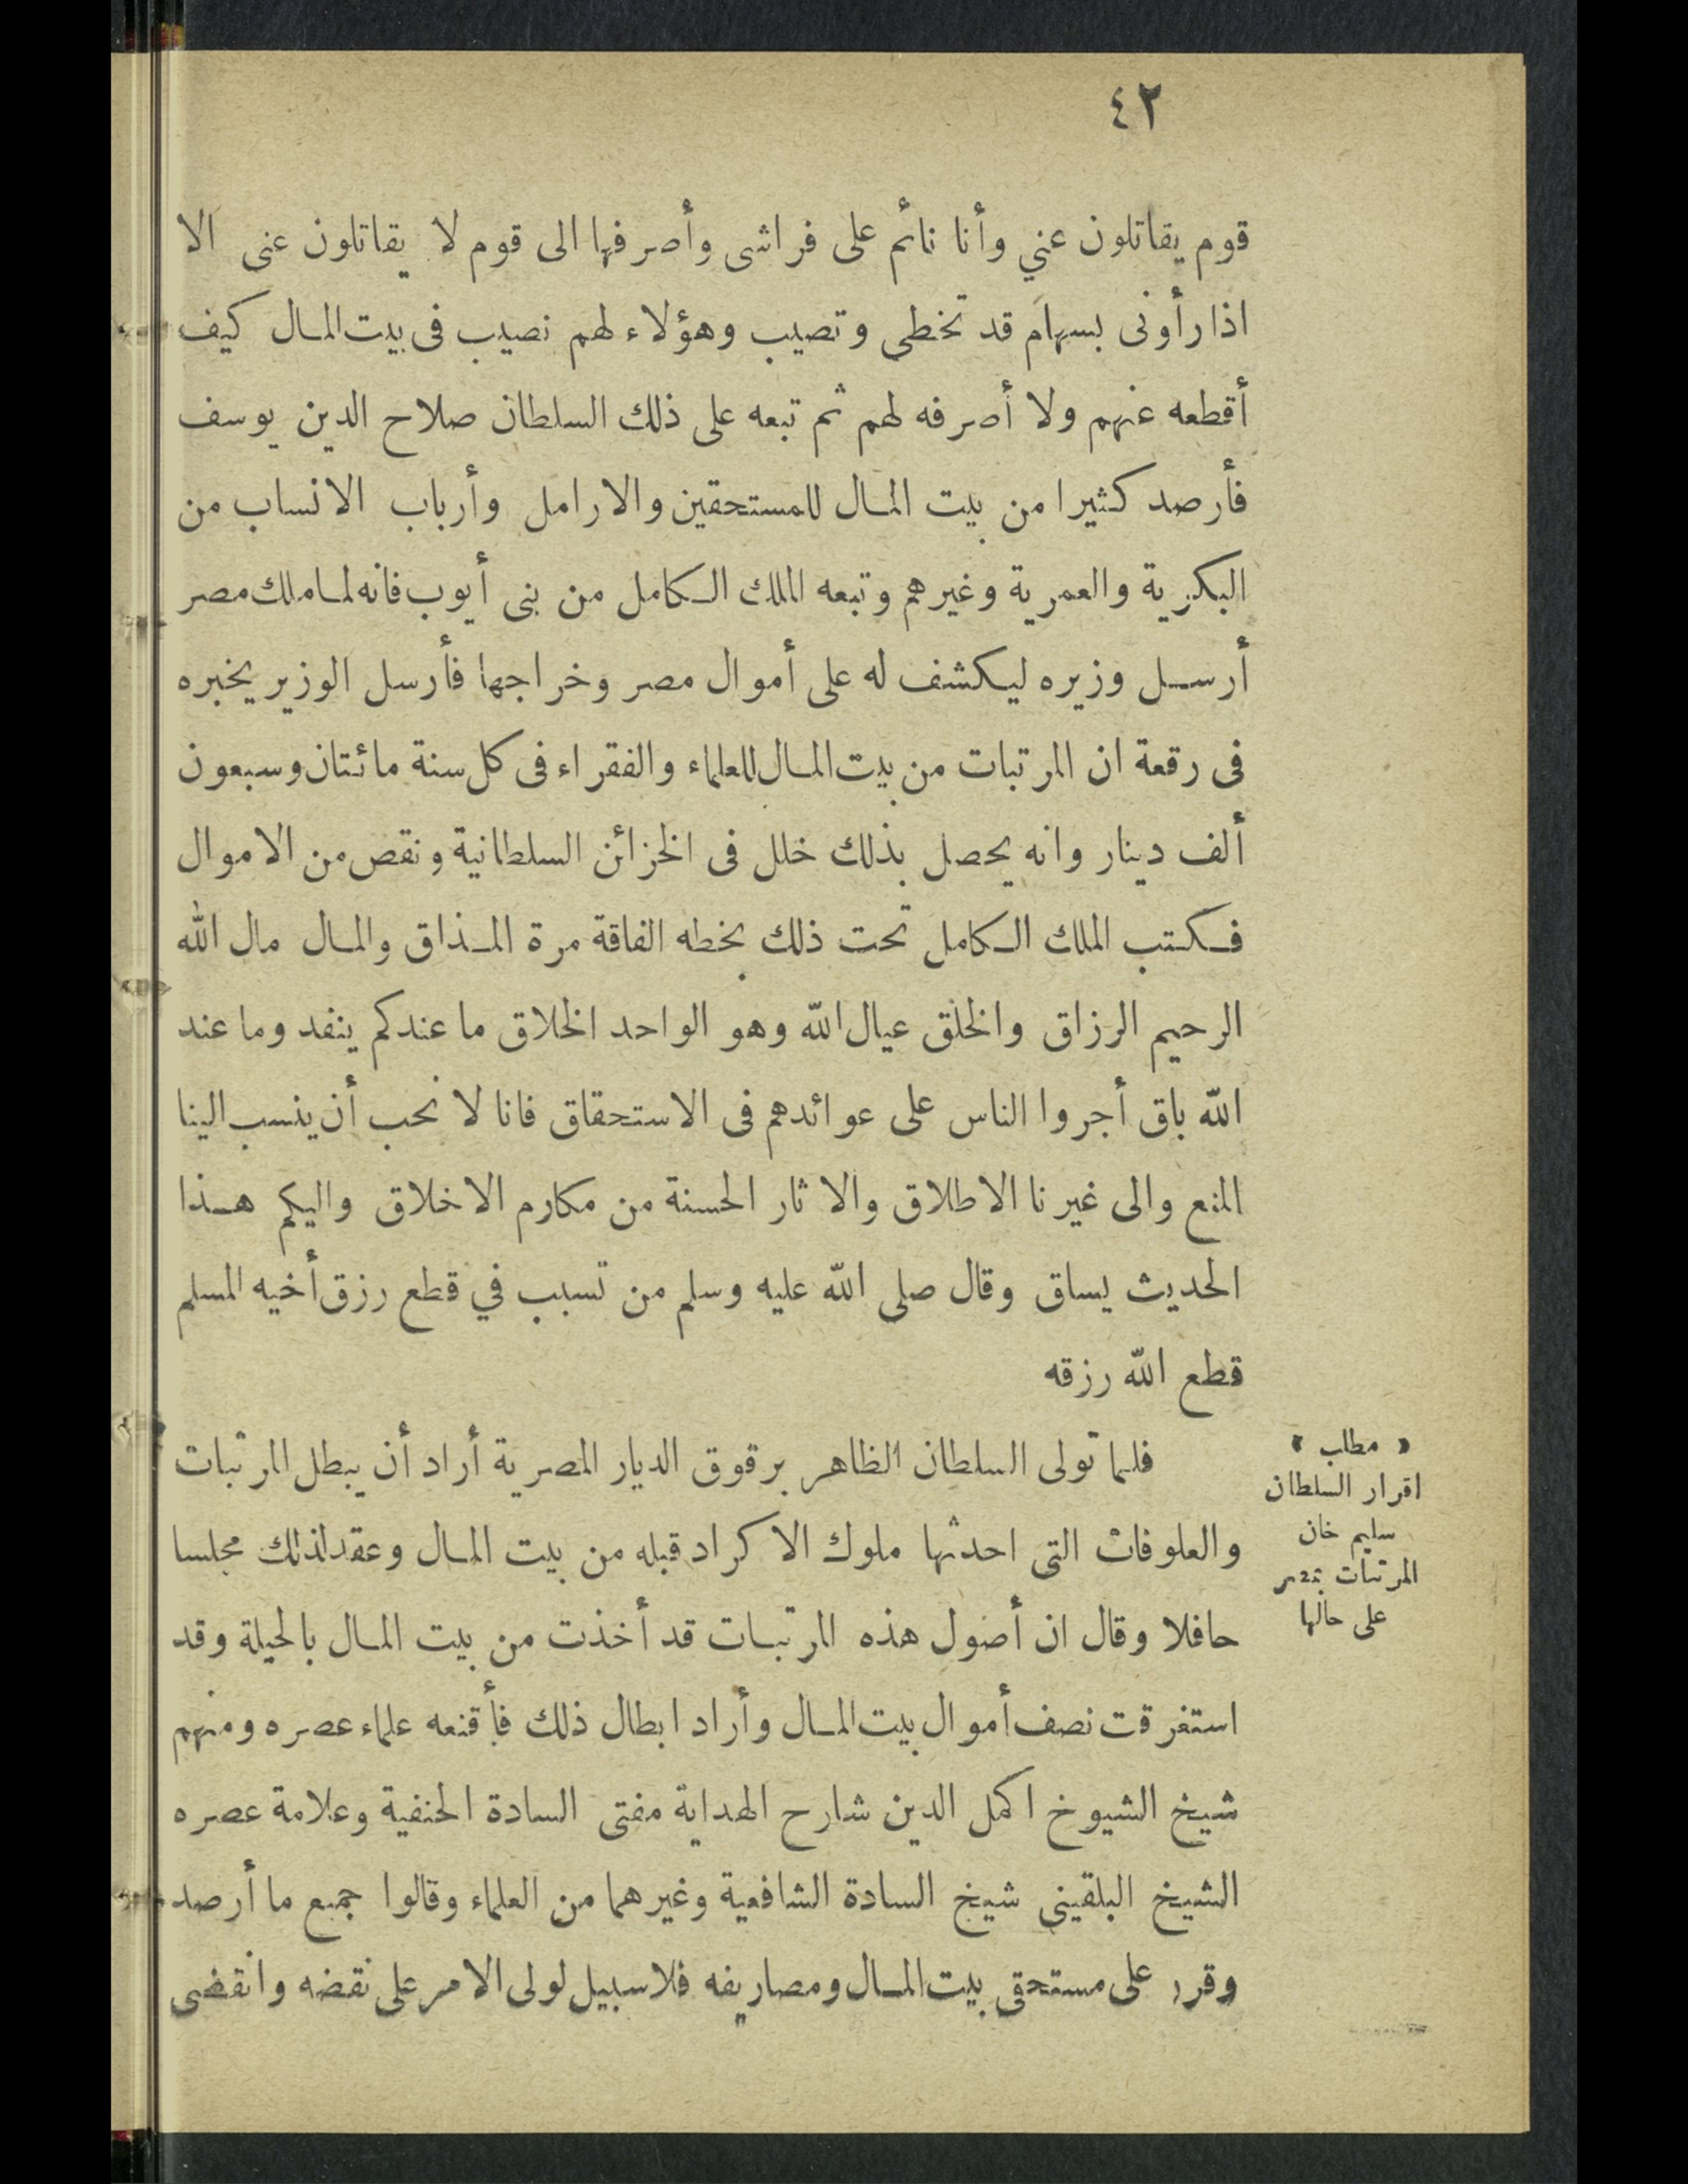 ٤٢
قوم يقاتلون عني وأنا نائم على فراشى وأصرفها الى قوم لا يقاتلون عنى الا
اذا رأونى بسهام قد تخطى وتصيب وهؤلاء لهم نصيب فى بيت المال كيف
أقطعه عنهم ولا أصرفه لهم ثم تبعه على ذلك السلطان صلاح الدين يوسف
فأرصد كثيرا من بيت المال للمستحقين والارامل وأرباب الانساب من
البكرية والعمرية وغيرهم وتبعه الملك الكامل من بنى أيوب فانه لما ملك مصر
أرسل وزيره ليكشف له على أموال مصر وخراجها فأرسل الوزير يخبره
فى رقعة ان المرتبات من بيت المال للعلماء والفقراء فى كل سنة مائتان وسبعون
ألف دينار وانه يحصل بذلك خلل فى الخزائن السلطانية ونقص من الاموال
فكتب الملك الكامل تحت ذلك بخطه الفاقة مرة المذاق والمال مال الله
الرحيم الرزاق والخلق عيال الله وهو الواحد الخلاق ما عندكم ينفد وما عند
الله باق أجروا الناس على عوائدهم فى الاستحقاق فانا لا نحب أن ينسب الينا
المنع والى غيرنا الاطلاق والاثار الحسنة من مكارم الاخلاق واليكم هذا
الحديث يساق وقال صلى الله عليه وسلم من تسبب في قطع رزق أخيه المسلم
قطع الله رزقه
« مطلب »
اقرار السلطان
سليم خان
المرتبات بمصر
على حالها
فلما تولى السلطان الظاهر برقوق الديار المصرية أراد أن يبطل المرتبات
والعلوفات التى احدثها ملوك الاكراد قبله من بيت المال وعقد لذلك مجلسا
حافلا وقال ان أصول هذه المرتبات قد أخذت من بيت المال بالحيلة وقد
استغرقت نصف أموال بيت المال وأراد ابطال ذلك فأقنعه علماء عصره ومنهم
شيخ الشيوخ اكمل الدين شارح الهداية مفتى السادة الحنفية وعلامة عصره
الشيخ البلقينى شيخ السادة الشافعية وغيرهما من العلماء وقالوا جميع ما أرصد
وقرر على مستحقى بيت المال ومصاريفه فلا سبيل لولى الامر على نقضه وانقضى